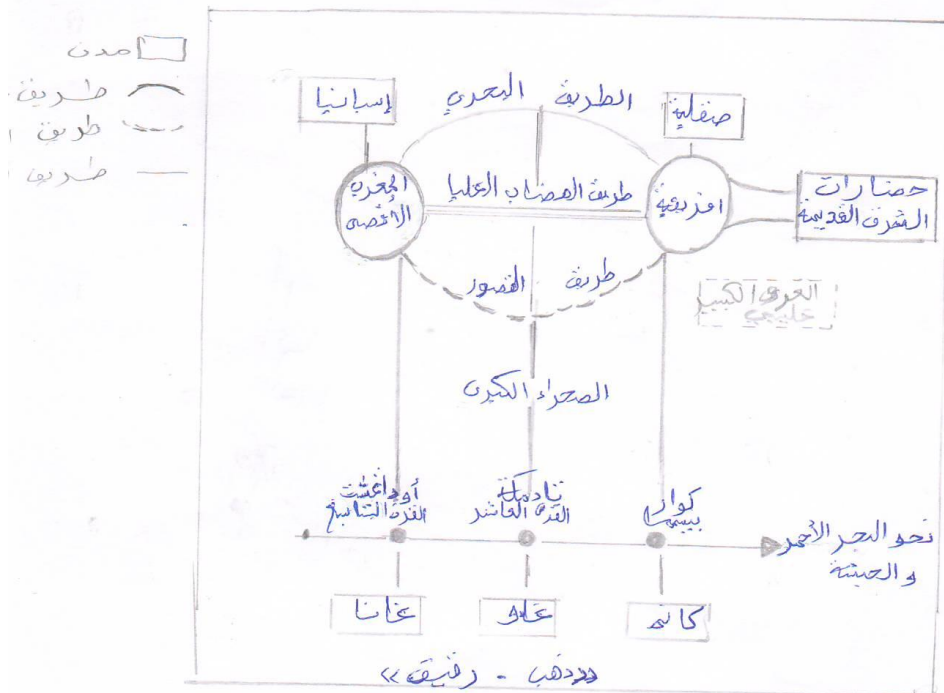 مدن
طريق
طريق
طريق
الطريق البحري
إسبانيا
صقلية
المغرب
الأقصى
طريق الهضاب العليا
افريقية
حضارات
الشرق القديمة
طريق القصور
العرق الكبير
الصحراء الكبرى
أوداغشت
القرن التاسع
تادمكة
القرن العاشر
كوار
نحو البحر الأحمر
و الحبشة
غانا
غاو
كانم
«ذهب - رقيق»